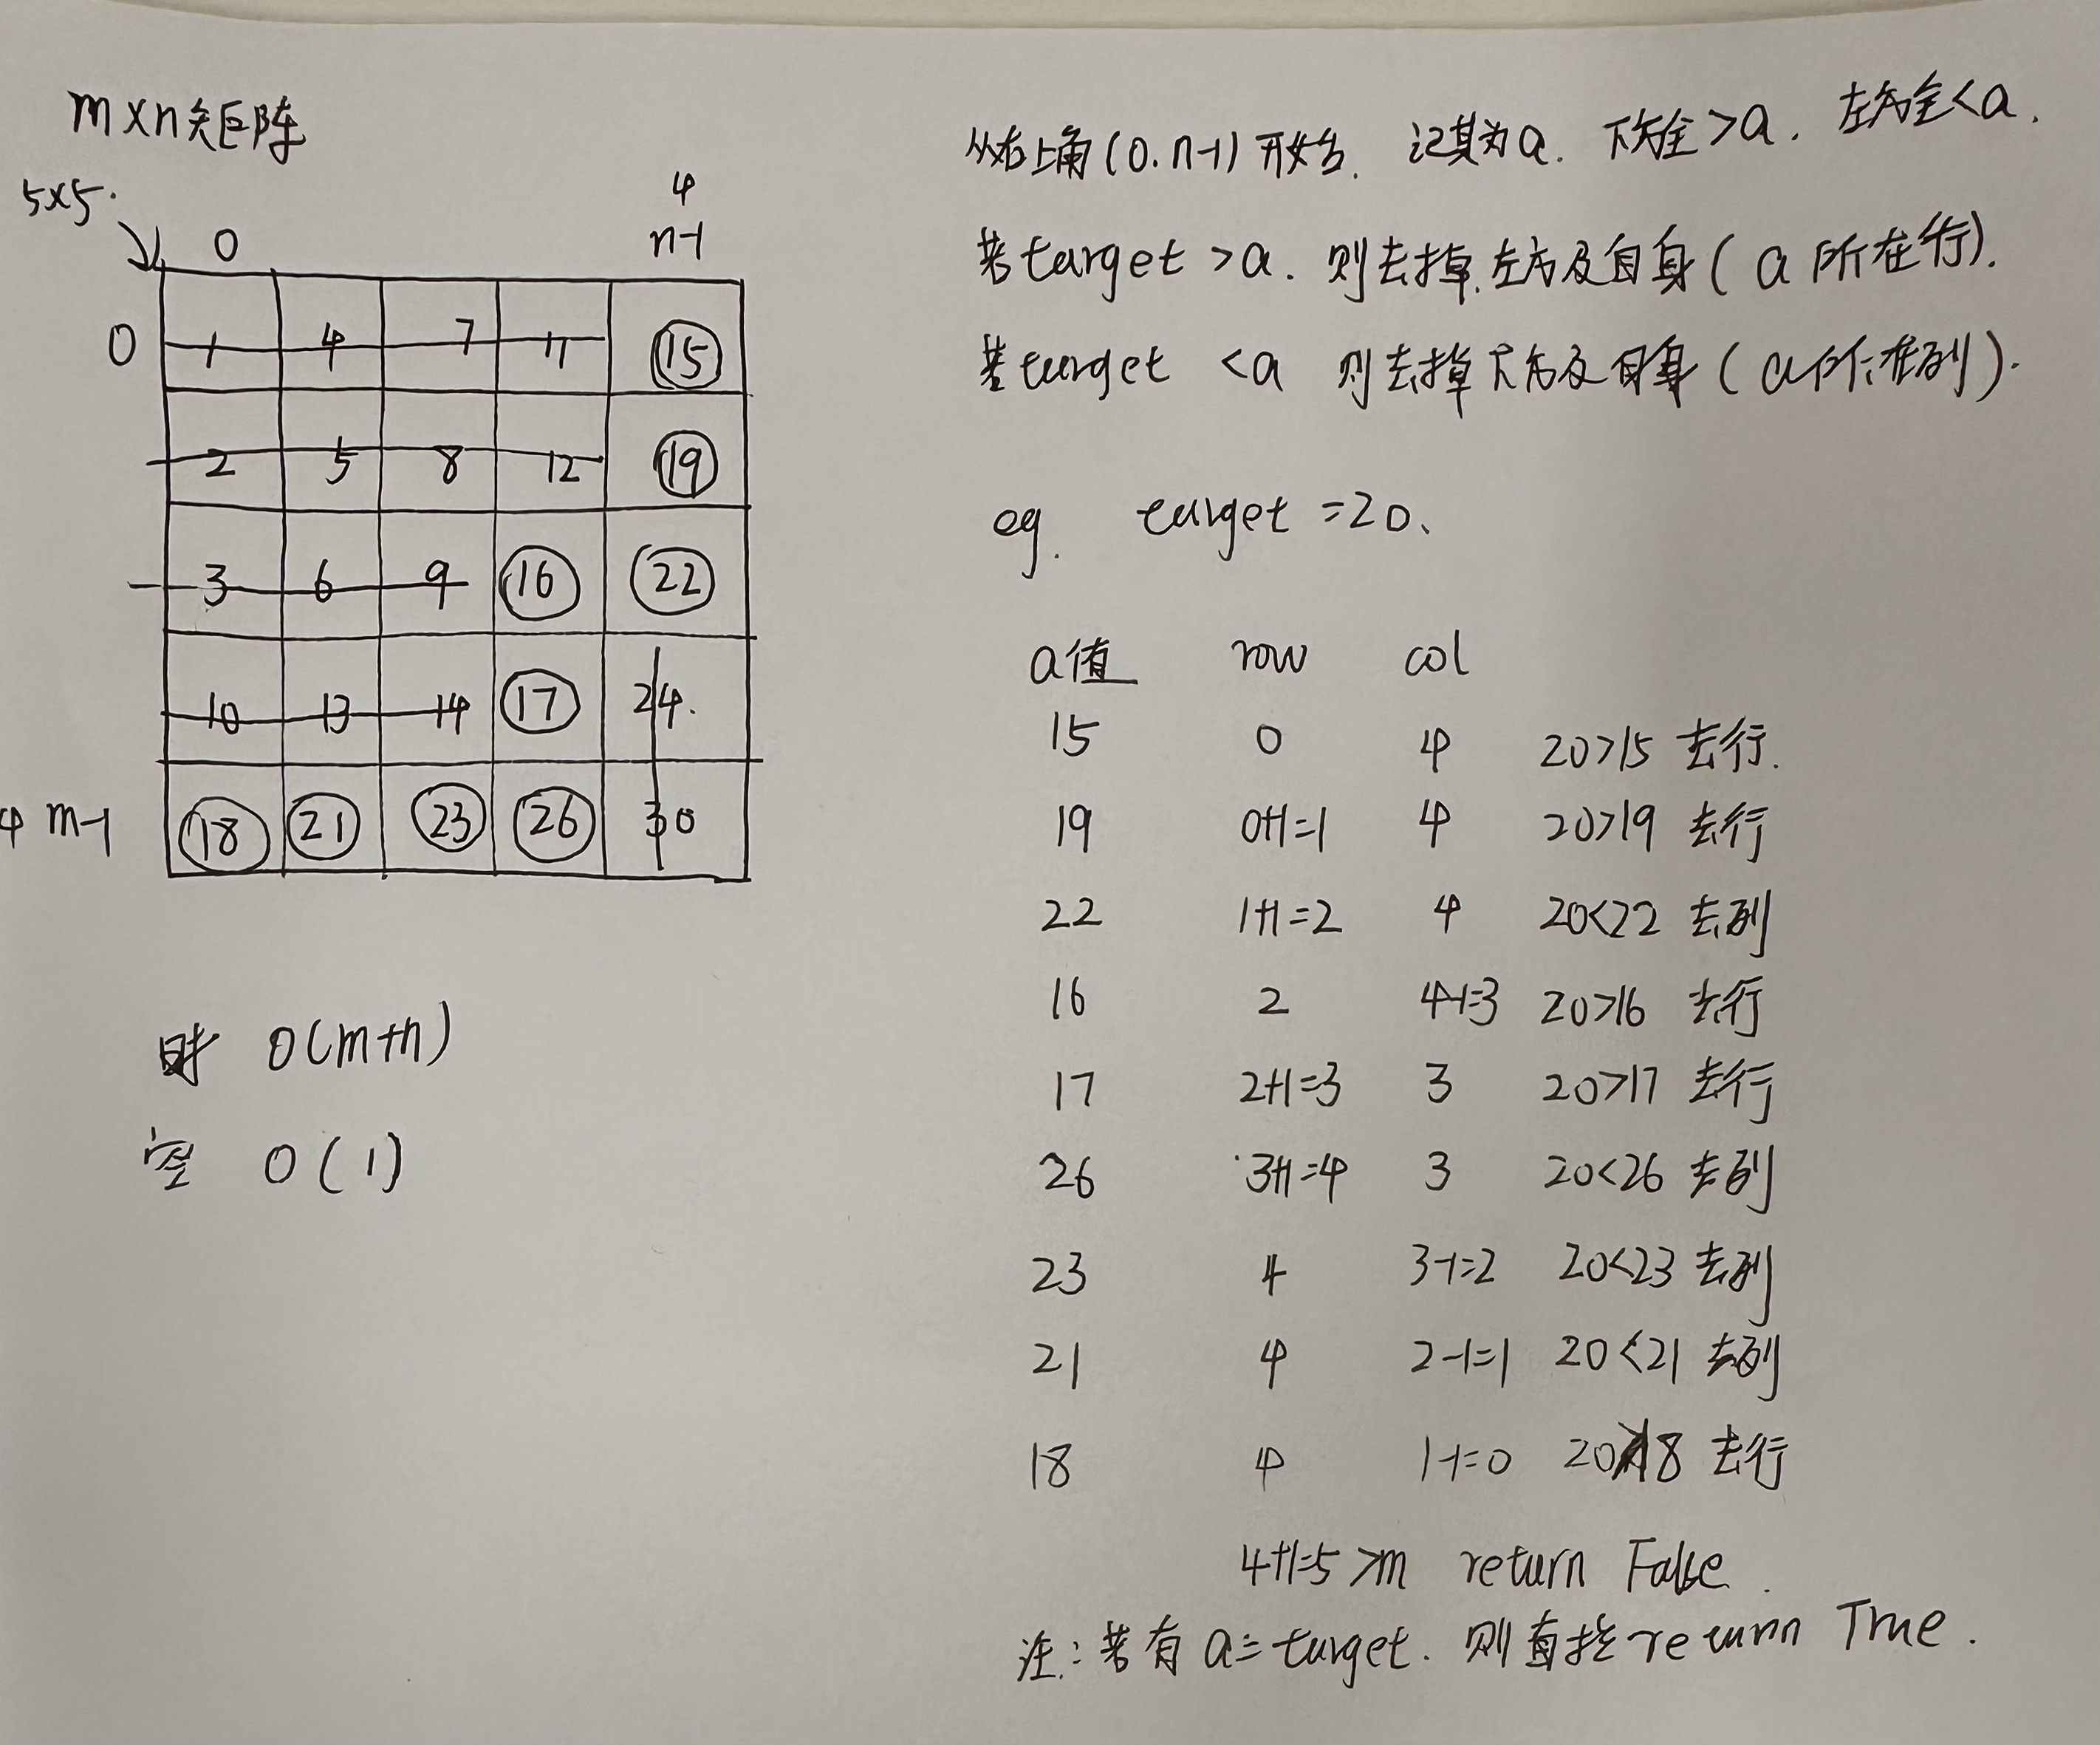 m×n矩阵
5×5.
0
4
n-1
0 1 4 7 11 15
2 5 8 12 19
3 6 9 16 22
10 13 14 17 24.
4 m-1 18 21 23 26 30
时 O(m+n)
空 O(1)
从右上角(0.n-1)开始. 记其为a. 下方全>a. 左方全<a.
若target >a. 则去掉左方及自身(a所在行).
若target <a 则去掉下方及自身(a所在列).
eg. target =20.
a值 row col
15 0 4 20>15 去行.
19 0+1=1 4 20>19 去行
22 1+1=2 4 20<22 去列
16 2 4-1=3 20>16 去行
17 2+1=3 3 20>17 去行
26 3+1=4 3 20<26 去列
23 4 3-1=2 20<23 去列
21 4 2-1=1 20<21 去列
18 4 1-1=0 20>18 去行
4+1=5 >m return False.
注:若有a=target. 则直接return True.